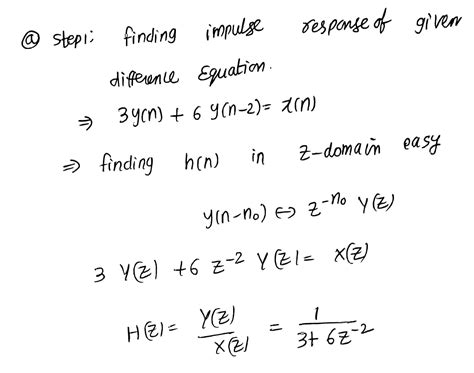 ⓐ step1: finding impulse response of given
difference Equation.
⇒ 3y(n) + 6 y(n-2) = x(n)
⇒ finding h(n) in z-domain easy
y(n-n₀) ↔ z^-n₀ Y(z)
3 Y(z) + 6 z^-2 Y(z) = X(z)
H(z) = Y(z)/X(z) = 1/(3+6z^-2)